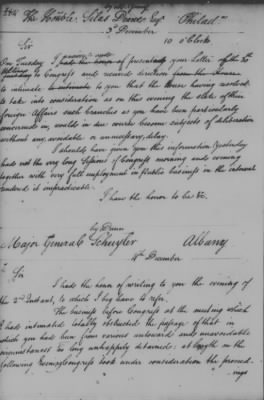 The Honble. Silas Deane Esqr. Philada.
3d December
10 oClock
Sir
On Tuesday I
Congress and received direction from the House
to intimate to you that the House having resolved
to take into consideration as on this evening the state of their
foreign Affairs such branches as you have been particularly
concerned in, would in due course become subjects of deliberation
without any avoidable or unnecessary delay.
I should have given you this information Yesterday
had not the very long Sessions of Congress morning and evening
together with very full employment in public business in the interval
rendered it impracticable.
I have the honor to be &c.
by Dunn
Major General Schuyler Albany
December
Sir
I had the honor of writing to you the evening of
the 2nd Instant, to which I beg leave to refer.
The business before Congress at the meeting which
I had intimated totally obstructed the passage of that in
which you had been from various untoward and unavoidable
circumstances so long unhappily detained: at length on the
following Evening Congress took under consideration the proceed-
ings